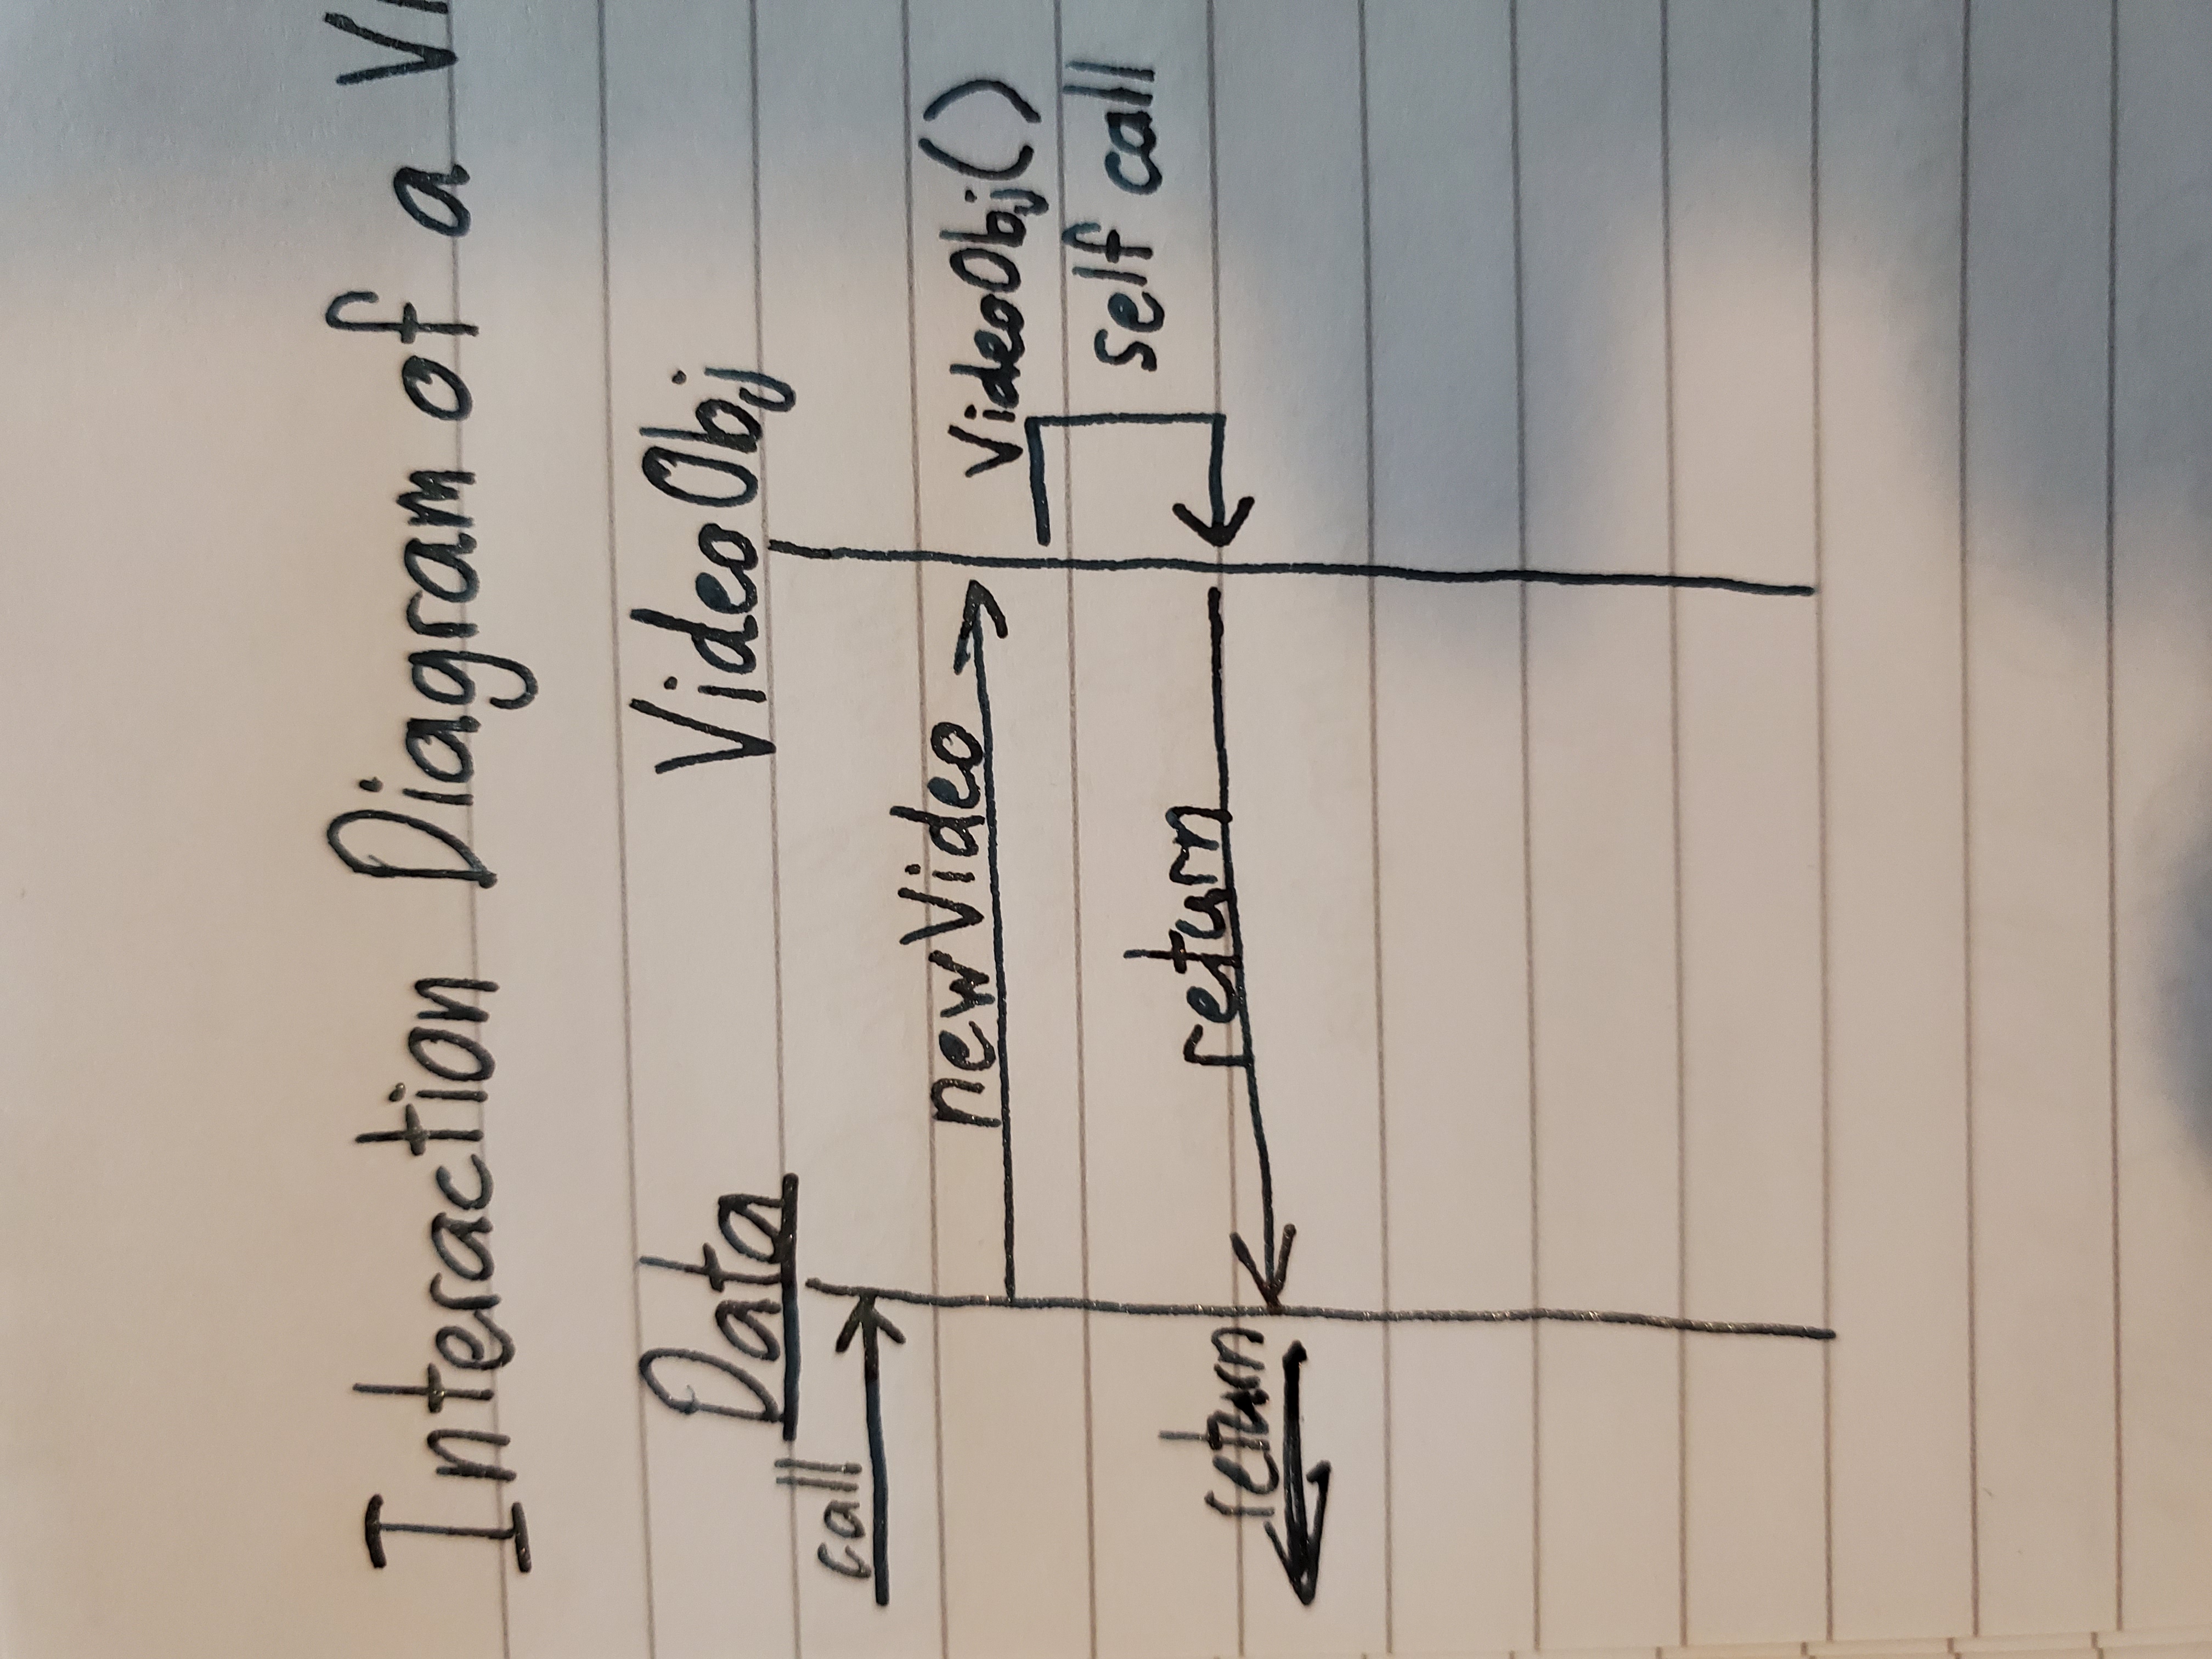 Interaction Diagram of a
Data
VideoObj
call
newVideo
VideoObj()
self call
return
return